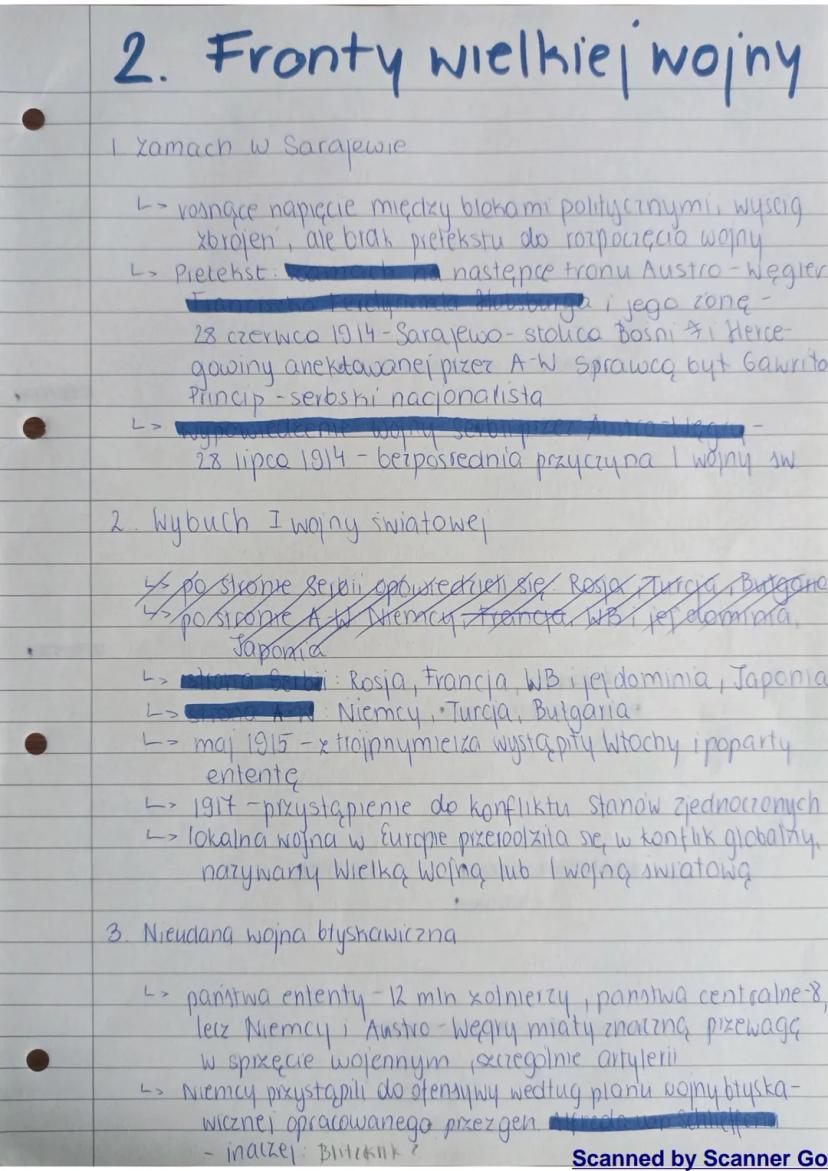 2. Fronty wielkiej wojny
1 Zamach w Sarajewie
↳ rosnące napięcie między blokami politycznymi, wyścig
zbrojeń, ale brak pretekstu do rozpoczęcia wojny
↳ Pretekst: zamach na następce tronu Austro-Węgier
Franciszka Ferdynanda Habsburga i jego żonę -
28 czerwca 1914 - Sarajewo - stolica Bośni i Herce-
gowiny anektawanej przez A-W Sprawcą był Gawriło
Princip - serbski nacjonalista
↳ wypowiedzenie wojny Serbii przez Austro-Węgry -
28 lipca 1914 - bezpośrednia przyczyna I wojny św
2. Wybuch I wojny światowej
↳ po stronie Serbii opowiedzieli się Rosja, Turcja, Bułgaria
↳ po stronie A-W Niemcy, Francja, WB i jej dominia,
Japonia
↳ strona Serbii: Rosja, Francja, WB i jej dominia, Japonia
↳ strona A-W: Niemcy, Turcja, Bułgaria
↳ maj 1915 - z trójpnymieża wystąpiły Włochy i poparły
ententę
↳ 1917 - przystąpienie do konfliktu Stanów Zjednoczonych
↳ lokalna wojna w Europie przerodziła się w konflik globalny,
nazywany Wielką Wojną lub I wojną światową
3. Nieudana wojna błyskawiczna
↳ państwa ententy - 12 mln żołnierzy, państwa centralne - 8,
lecz Niemcy i Austro-Węgry miały znaczną przewagę
w sprzęcie wojennym, szczególnie artylerii
↳ Niemcy przystąpili do ofensywy według planu wojny błyska-
wicznej opracowanego przez gen Alfreda von Schlieffena
- inaczej:
Scanned by Scanner Go